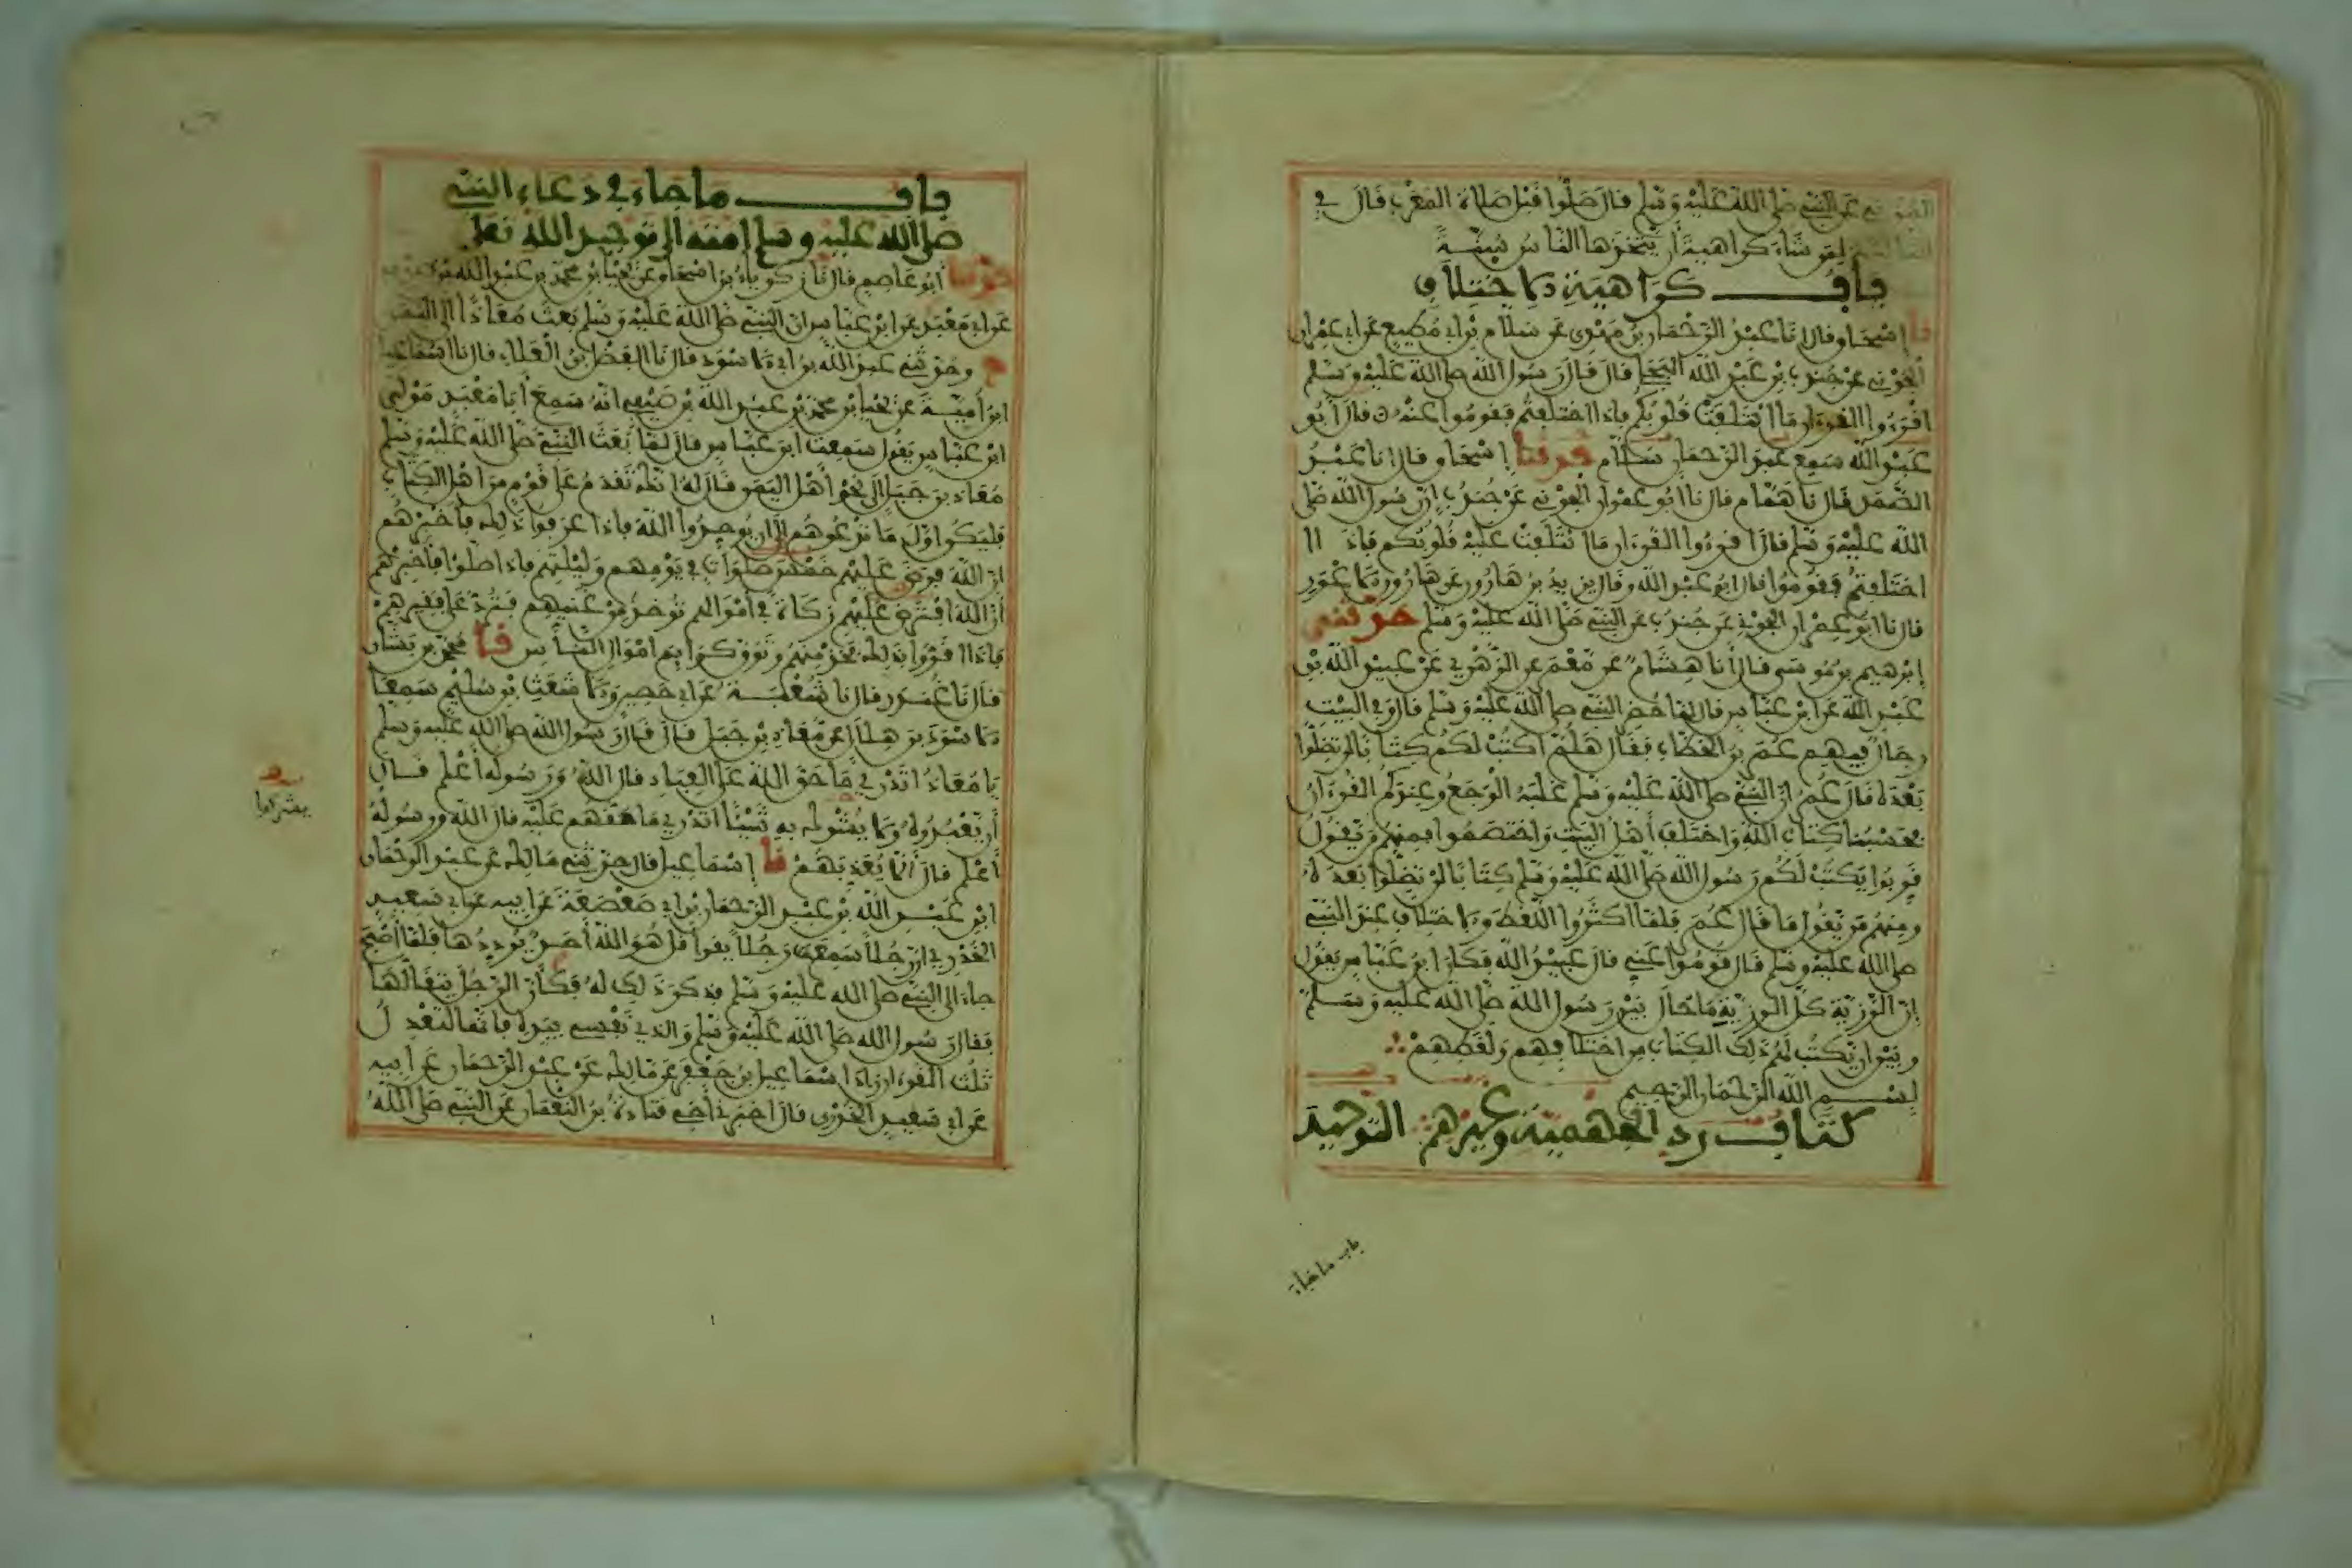 المزني عن النبي صلى الله عليه وسلم قال صلوا قبل صلاة المغرب قال في
الثالثة لمن شاء كراهية أن يتخذها الناس سنة
باب كراهية الاختلاف
نا إسحاق قال أنا عبد الرحمان بن مهدي عن سلام بن أبي مطيع عن أبي عمران
الجوني عن جندب بن عبد الله البجلي قال قال رسول الله صلى الله عليه وسلم
اقرءوا القرءان ما ائتلفت قلوبكم فإذا اختلفتم فقوموا عنه قال أبو
عبد الله سمع عبد الرحمان سلام حدثنا إسحاق قال أنا عبد
الصمد قال نا همام قال نا أبو عمران الجوني عن جندب أن رسول الله صلى
الله عليه وسلم قال اقرءوا القرءان ما ائتلفت عليه قلوبكم فإذا
اختلفتم فقوموا قال أبو عبد الله وقال يزيد بن هارون عن هارون الأعور
قال نا أبو عمران الجوني عن جندب عن النبي صلى الله عليه وسلم حدثني
إبرهيم بن موسى قال أنا هشام عن معمر عن الزهري عن عبيد الله بن
عبد الله عن ابن عباس قال لما حضر النبي صلى الله عليه وسلم قال وفي البيت
رجال فيهم عمر بن الخطاب فقال هلم أكتب لكم كتابا لن تضلوا
بعده قال عمر إن النبي صلى الله عليه وسلم غلبه الوجع وعندكم القرءان
فحسبنا كتاب الله واختلف أهل البيت واختصموا فمنهم من يقول
قربوا يكتب لكم رسول الله صلى الله عليه وسلم كتابا لن تضلوا بعده
ومنهم من يقول ما قال عمر فلما أكثروا اللغط والاختلاف عند النبي
صلى الله عليه وسلم قال قوموا عني قال عبيد الله فكان ابن عباس يقول
إن الرزية كل الرزية ما حال بين رسول الله صلى الله عليه وسلم
وبين أن يكتب لهم ذلك الكتاب من اختلافهم ولغطهم
بسم الله الرحمان الرحيم
كتاب رد الجهمية وغيرهم التوحيد
باب ما جاء
باب ما جاء في دعاء النبي
صلى الله عليه وسلم أمته إلى توحيد الله تعلى
حدثنا أبو عاصم قال نا زكرياء بن إسحاق عن يحيى بن محمد بن عبد الله بن
عن أبي معبد عن ابن عباس أن النبي صلى الله عليه وسلم بعث معاذا إلى اليمن
ح وحدثني عبد الله بن أبي الأسود قال نا الفضل بن العلاء قال نا إسماعيل
ابن أمية عن يحيى بن محمد بن عبد الله بن صيفي أنه سمع أبا معبد مولى
ابن عباس يقول سمعت ابن عباس قال لما بعث النبي صلى الله عليه وسلم
معاذ بن جبل إلى نحو أهل اليمن قال له إنك تقدم على قوم من أهل الكتاب
فليكن أول ما تدعوهم إلى أن يوحدوا الله فإذا عرفوا ذلك فأخبرهم
أن الله فرض عليهم خمس صلوات في يومهم وليلتهم فإذا صلوا فأخبرهم
أن الله افترض عليهم زكاة في أموالهم تؤخذ من غنيهم فترد على فقيرهم
فإذا أقروا بذلك فخذ منهم وتوق كرائم أموال الناس نا محمد بن بشار
قال نا غندر قال نا شعبة عن أبي حصين والأشعث بن سليم سمعا
الأسود بن هلال عن معاذ بن جبل قال قال رسول الله صلى الله عليه وسلم
يا معاذ أتدري ما حق الله على العباد قال الله ورسوله أعلم قال
أن يعبدوه ولا يشركوا به شيئا أتدري ما حقهم عليه قال الله ورسوله
أعلم قال ألا يعذبهم نا إسماعيل قال حدثني مالك عن عبد الرحمان
ابن عبد الله بن عبد الرحمان بن أبي صعصعة عن أبيه عن أبي سعيد
الخدري أن رجلا سمع رجلا يقرأ قل هو الله أحد يرددها فلما أصبح
جاء إلى النبي صلى الله عليه وسلم فذكر ذلك له فكأن الرجل يتقالها
فقال رسول الله صلى الله عليه وسلم والذي نفسي بيده إنها لتعدل
ثلث القرءان زاد إسماعيل بن جعفر عن مالك عن عبد الرحمان عن أبيه
عن أبي سعيد الخدري قال أخبرني أخي قتادة بن النعمان عن النبي صلى الله
يشركوا